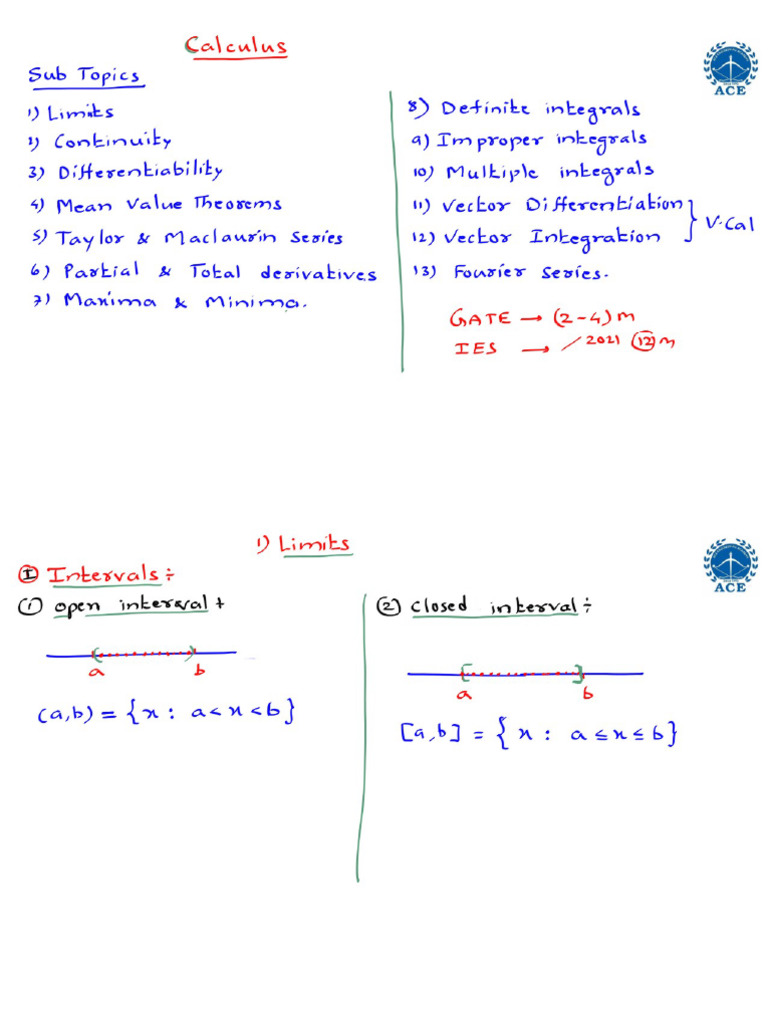 Calculus
Sub Topics
1) Limits
2) Continuity
3) Differentiability
4) Mean Value Theorems
5) Taylor & Maclaurin series
6) Partial & Total derivatives
7) Maxima & Minima.
8) Definite integrals
9) Improper integrals
10) Multiple integrals
11) Vector Differentiation
12) Vector Integration
} V.Cal
13) Fourier series.
GATE → (2-4) M
IES → / 2021 (12) M
ACE
1) Limits
I Intervals ÷
(1) open interval ÷
a b
(a,b) = { x : a < x < b }
(2) closed interval ÷
a b
[a,b] = { x : a ≤ x ≤ b }
ACE